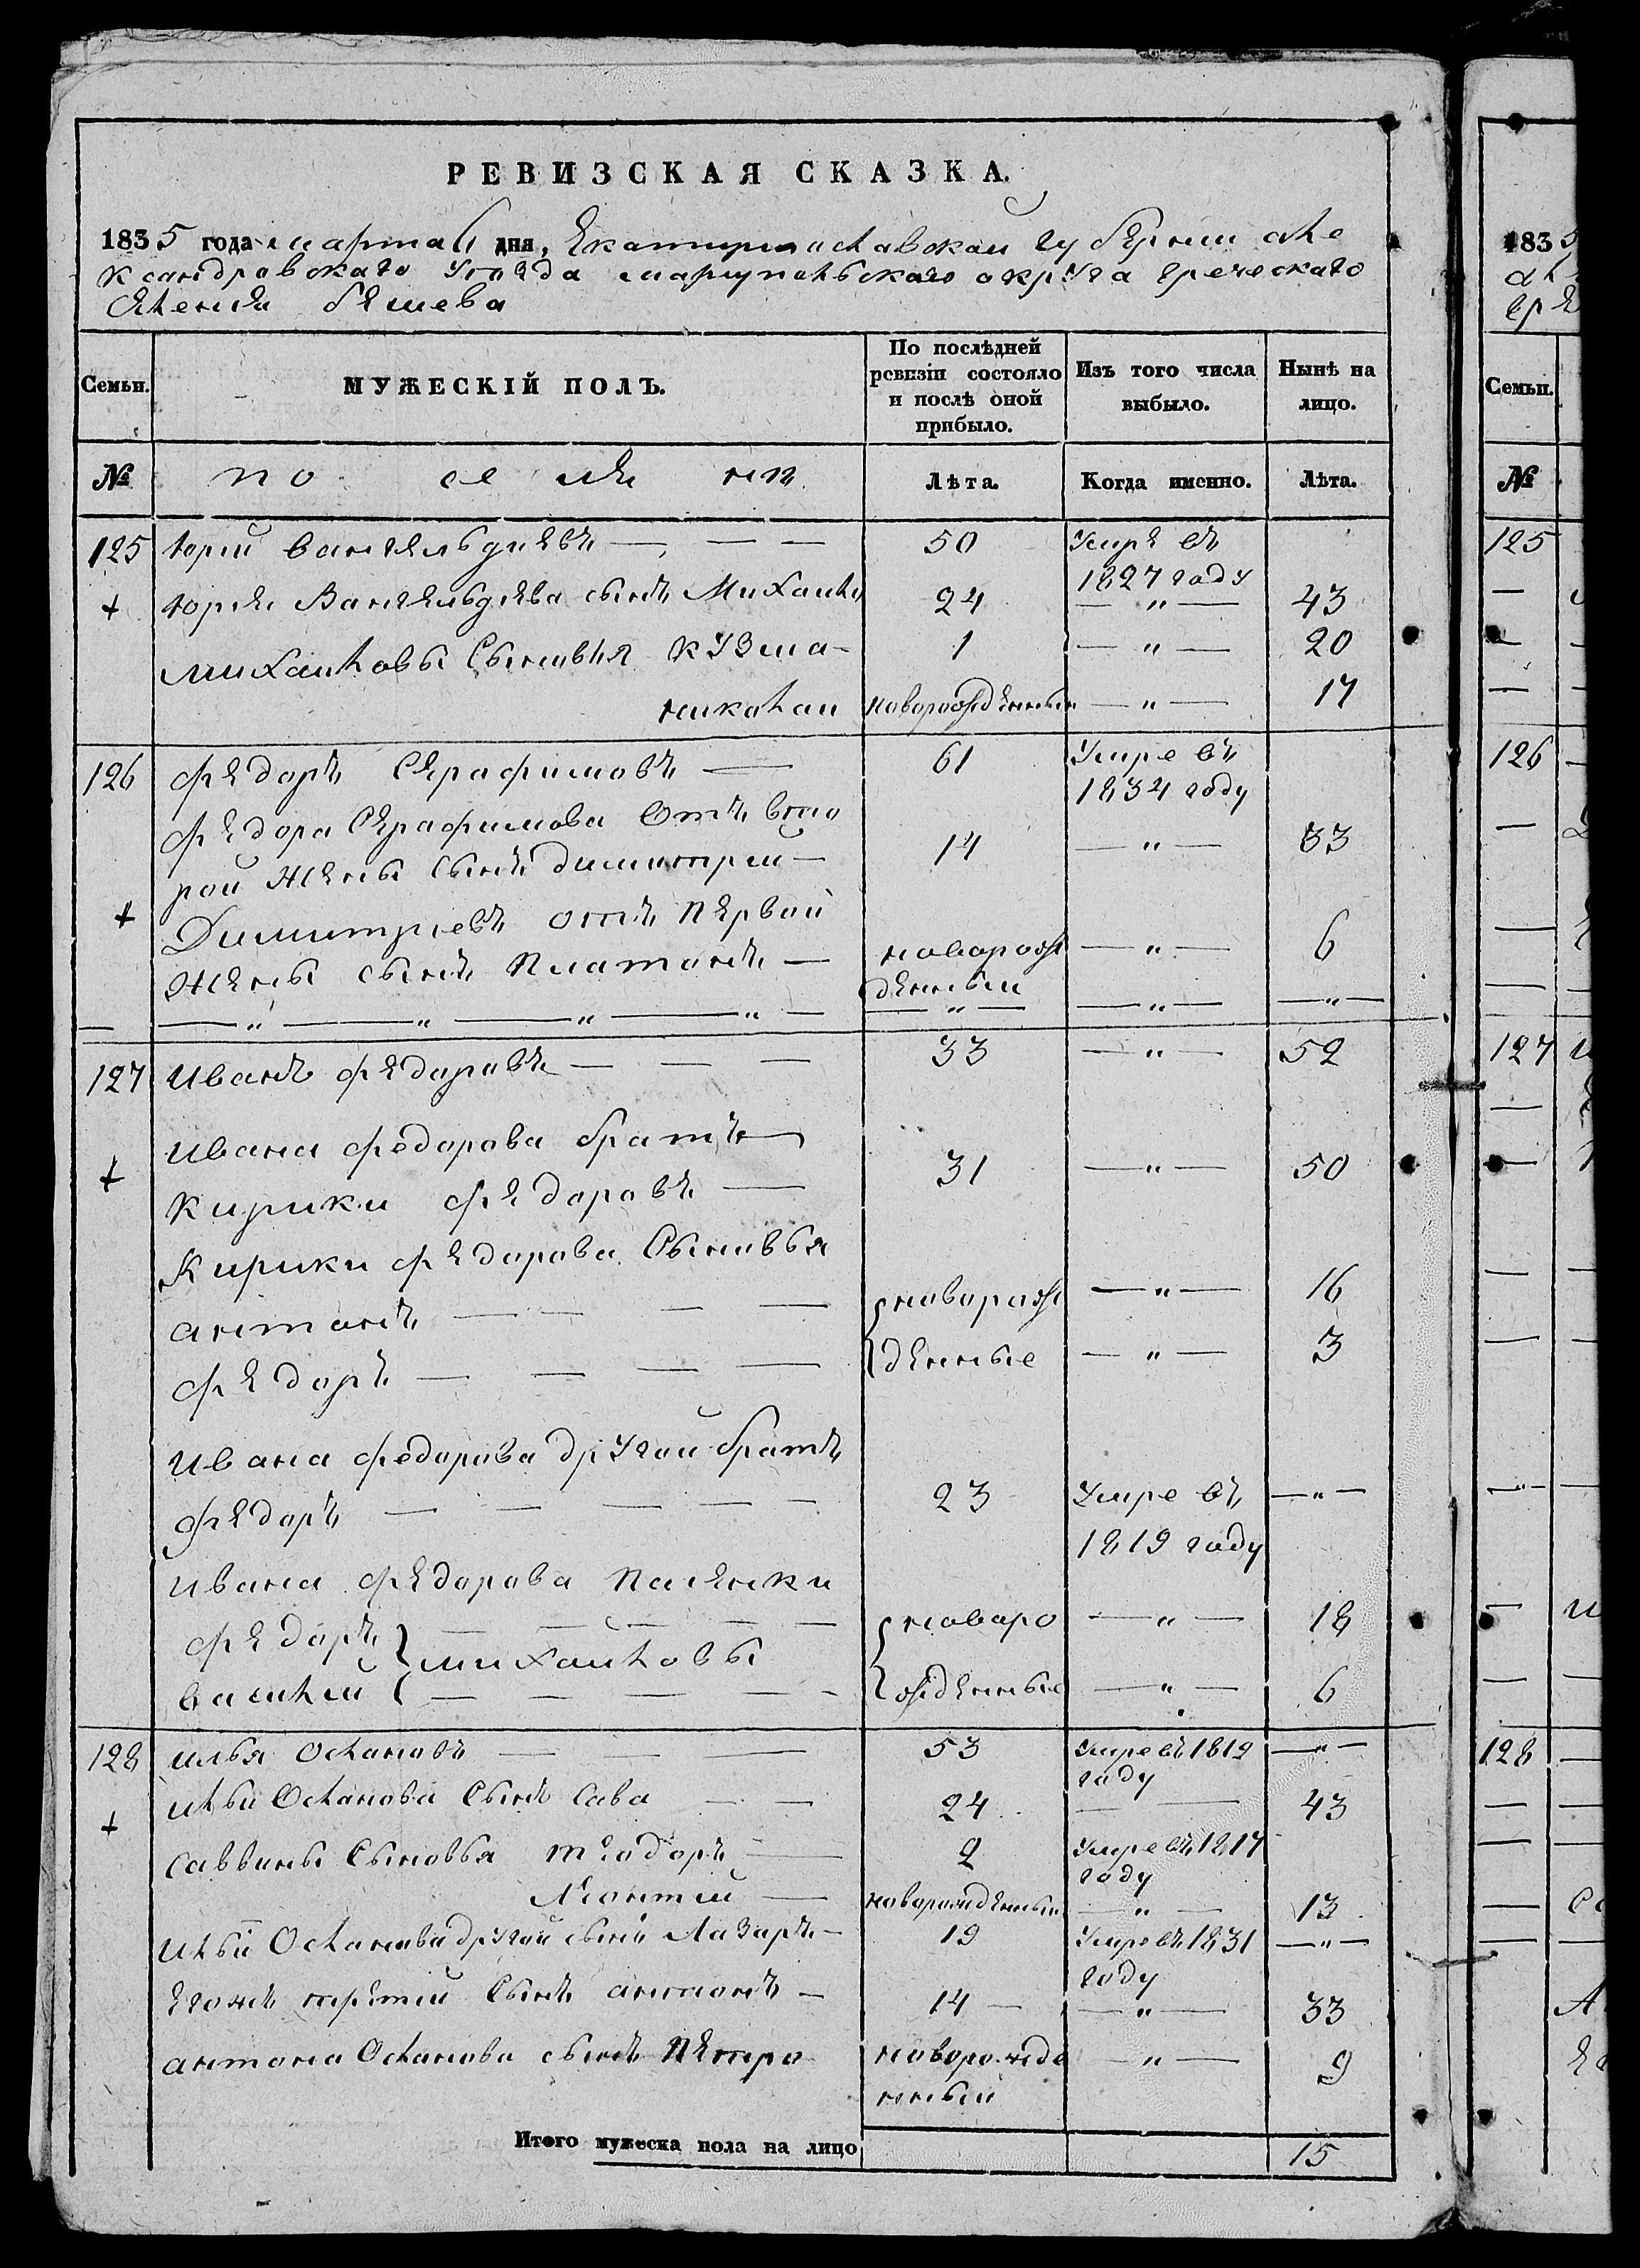 РЕВИЗСКАЯ СКАЗКА.
1835 года марта 6 дня, Екатеринославской губернии але
ксандровскаго уезда мариупольскаго округа греческаго
селения бешева
Семьи.
МУЖЕСКІЙ ПОЛЪ.
По послѣдней ревизіи состояло и послѣ оной прибыло.
Изъ того числа выбыло.
Нынѣ на лицо.
№ поселяни Лѣта. Когда именно. Лѣта.
125 юрий вангельдиевъ — — — 50 Умре въ
1827 году
+ юрия Вангельдиева сынъ Михаилъ 24 — „ — 43
михаиловы Сыновья кузма — 1 — „ — 20
николаи новорожденный — „ — 17
126 федоръ Серафимовъ — 61 Умре въ
1834 году
федора Серафимова Отъ вто
рой жены сынъ димитрий — 14 — „ — 33
+ Димитриевъ отъ первой
жены сынъ Платонъ — новорож — „ — 6
денный
— — „ — „ — „ — „ — — „ — — „ — — „ —
127 иванъ федоровъ — — — 33 — „ — 52
ивана федорова братъ
+ кирики федоровъ — 31 — „ — 50
Кирики федорова Сыновья
антонъ — — — — новорож — „ — 16
федоръ — — — — денные — „ — 3
ивана федорова другой братъ
федоръ — — — — — 23 Умре въ — „ —
1819 году
ивана федорова пасенки
федоръ — — — — — новоро — „ — 18
михаиловы
василий — — — — — жденные — „ — 6
128 ильяОслановъ — — — 53 Умре въ 1819 — „ —
году
ильи Осланова Сынъ Сава — — 24 — — 43
+ саввины Сыновья теодоръ — 2 Умре въ 1817
году
Леонтий — новорожденный — „ — 13
ильи Осланова другой сынъ Лазаръ — 19 Умре въ 1831 — „ —
году
егожъ третий Сынъ антонъ — 14 — — „ — 33
антона Осланова сынъ Петро новорожде — „ — 9
нный
Итого мужеска пола на лицо 15
1835
Семьи.
№
125
126
127
128